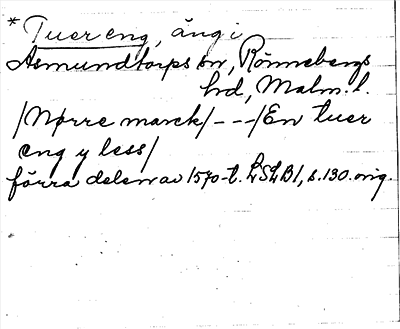 * Tuer eng, äng i
Asmundtorps sn, Rönnebergs
hd, Malm. l.
/Nørre marck/ - - - /En tuer
eng y less/
förra delen av 1570-t. LSLB1, s. 130. orig.